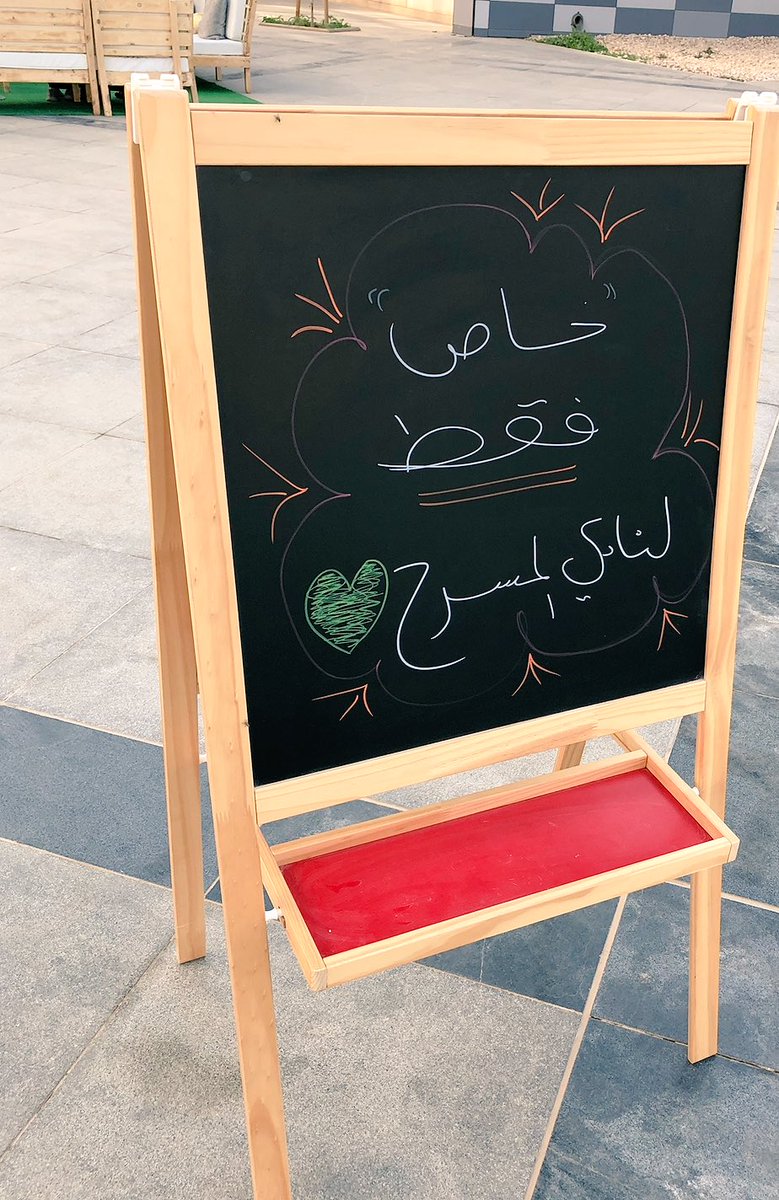 "خاص"
فقط
لنادي المسرح